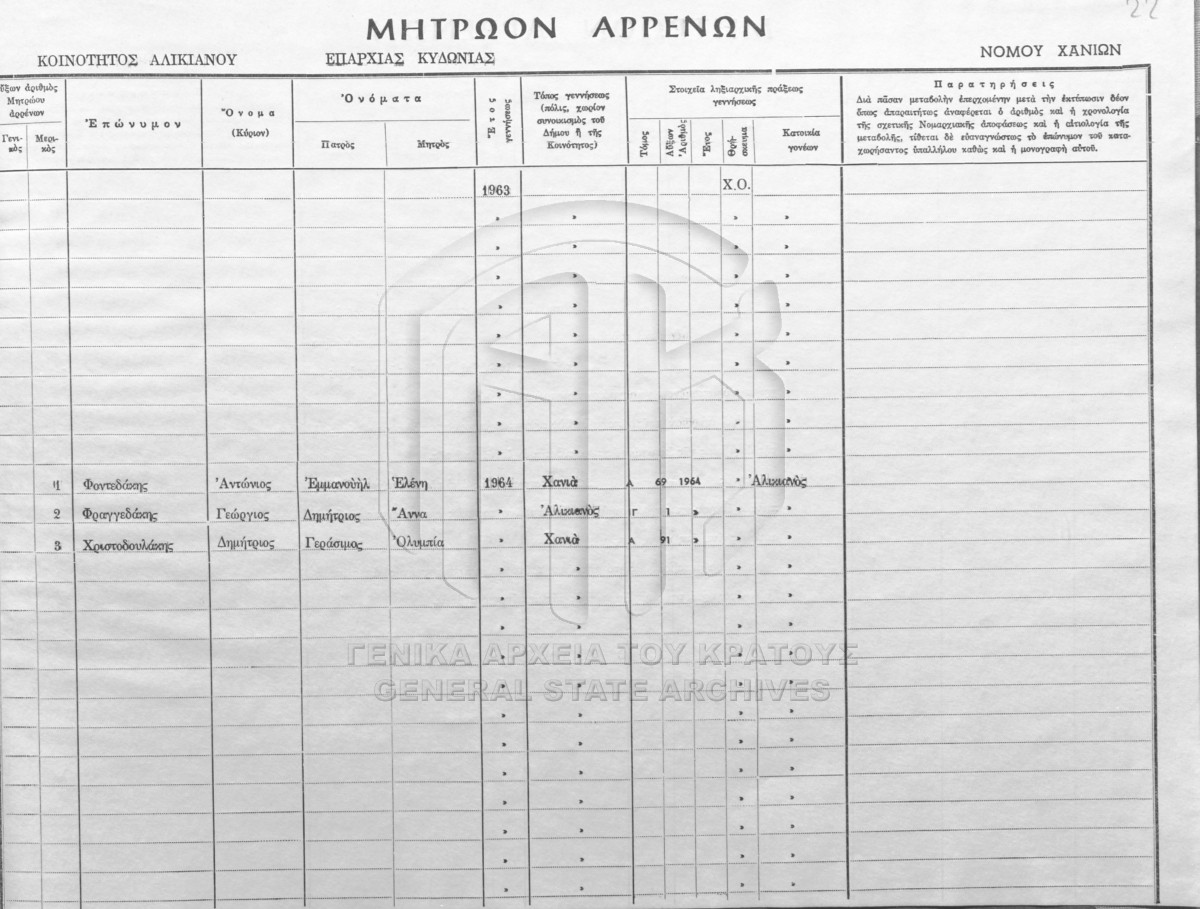 22
ΜΗΤΡΩΟΝ ΑΡΡΕΝΩΝ
ΚΟΙΝΟΤΗΤΟΣ ΑΛΙΚΙΑΝΟΥ ΕΠΑΡΧΙΑΣ ΚΥΔΩΝΙΑΣ ΝΟΜΟΥ ΧΑΝΙΩΝ
ἀριθμὸς
Μητρώου
ἀρρένων
Γενι-
κὸς
Μερι-
κὸς
Ἐπώνυμον
Ὄνομα
(Κύριον)
Ὀνόματα
Πατρὸς
Μητρὸς
Ἔτος
γεννήσεως
Τόπος γεννήσεως
(πόλις, χωρίον
συνοικισμὸς τοῦ
Δήμου ἢ τῆς
Κοινότητος)
Στοιχεῖα ληξιαρχικῆς πράξεως
γεννήσεως
Τόμος
Αὔξων
Ἀριθμὸς
Ἔτος
Θρή-
σκευμα
Κατοικία
γονέων
Παρατηρήσεις
Διὰ πᾶσαν μεταβολὴν ἐπερχομένην μετὰ τὴν ἐκτύπωσιν δέον
ὅπως ἀπαραιτήτως ἀναφέρεται ὁ ἀριθμὸς καὶ ἡ χρονολογία
τῆς σχετικῆς Νομαρχιακῆς ἀποφάσεως καὶ ἡ αἰτιολογία τῆς
μεταβολῆς, τίθεται δὲ εὐαναγνώστως τὸ ἐπώνυμον τοῦ κατα-
χωρήσαντος ὑπαλλήλου καθὼς καὶ ἡ μονογραφὴ αὐτοῦ.
1963 Χ.Ο.
» » » »
» » » »
» » » »
» » » »
» » » »
» » » »
» » » »
» » » »
» » » »
1 Φοντεδάκης Ἀντώνιος Ἐμμανουὴλ Ἑλένη 1964 Χανιὰ Α 69 1964 » Ἀλικιανὸς
2 Φραγγεδάκης Γεώργιος Δημήτριος Ἄννα » Ἀλικιανὸς Γ 1 » » »
3 Χριστοδουλάκης Δημήτριος Γεράσιμος Ὀλυμπία » Χανιὰ Α 91 » » »
» » » »
» » » »
» » » »
» » » »
» » » »
» » » »
» » » »
» » » »
» » » »
» » » »
» » » »
» » » »
ΓΕΝΙΚΑ ΑΡΧΕΙΑ ΤΟΥ ΚΡΑΤΟΥΣ
GENERAL STATE ARCHIVES